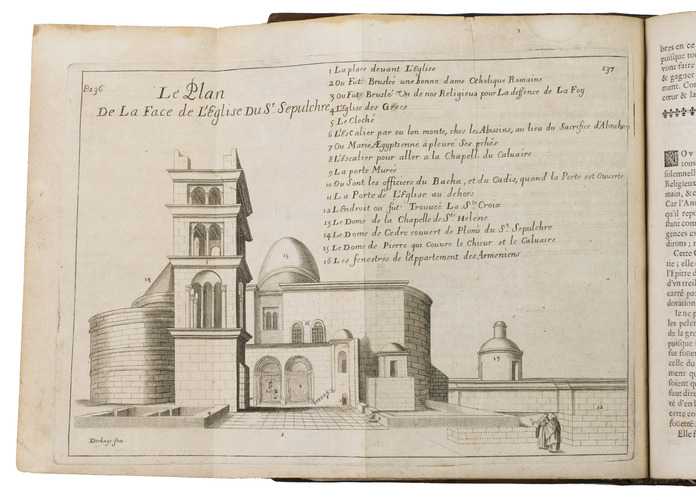 P.136
137
Le Plan
De La Face de L'Eglise Du St. Sepulchre
1 La place deuant L'Eglise
2 Ou Fut Bruslée une bonne dame Catholique Romaine
3 Ou Fut Bruslé Un de nos Religieus pour La deffence de La Foy
4 L'Eglise des Grecs
5 Le Cloché
6 L'Escalier par ou lon monte, ches les Abisins, au lieu du Sacrifice d'Abraham
7 Ou Marie Ægyptienne a pleuré Ses pchés
8 L'Escalier pour aller a la Chapell du Caluaire
9 La porte Murée
10 Ou Sont les officiers du Bacha, et du Cadis, quand la Porte est Ouuerte
11 La Porte de L'Eglise au dehors
12 L'Endroit ou fut Trouuée La Ste Croix
13 Le Dome de la Chapelle de Ste Helene
14 Le Dome de Cedre couuert de Plomb du St. Sepulchre
15 Le Dome de Pierre qui Couure le Chœur et le Caluaire
16 Les fenestres de l'Appartement des Armeniens
14
15
16
13
12
1
bres en ce
puisque to
vont faire
& gagner
ment. Co
cœur & la
NOV
tous
solemnelle
Religieux
main, & c
Car l'An
qu'il rep
stant com
gences ex
dirons; 
Cette
tie; elle
l'Epitre d
d'vn treil
carré pa
doration
Ie ne p
les peler
de la gre
puisque
celle du
ment qu
soient q
faut dire
té d'en l
cette co
foüette
Elle f